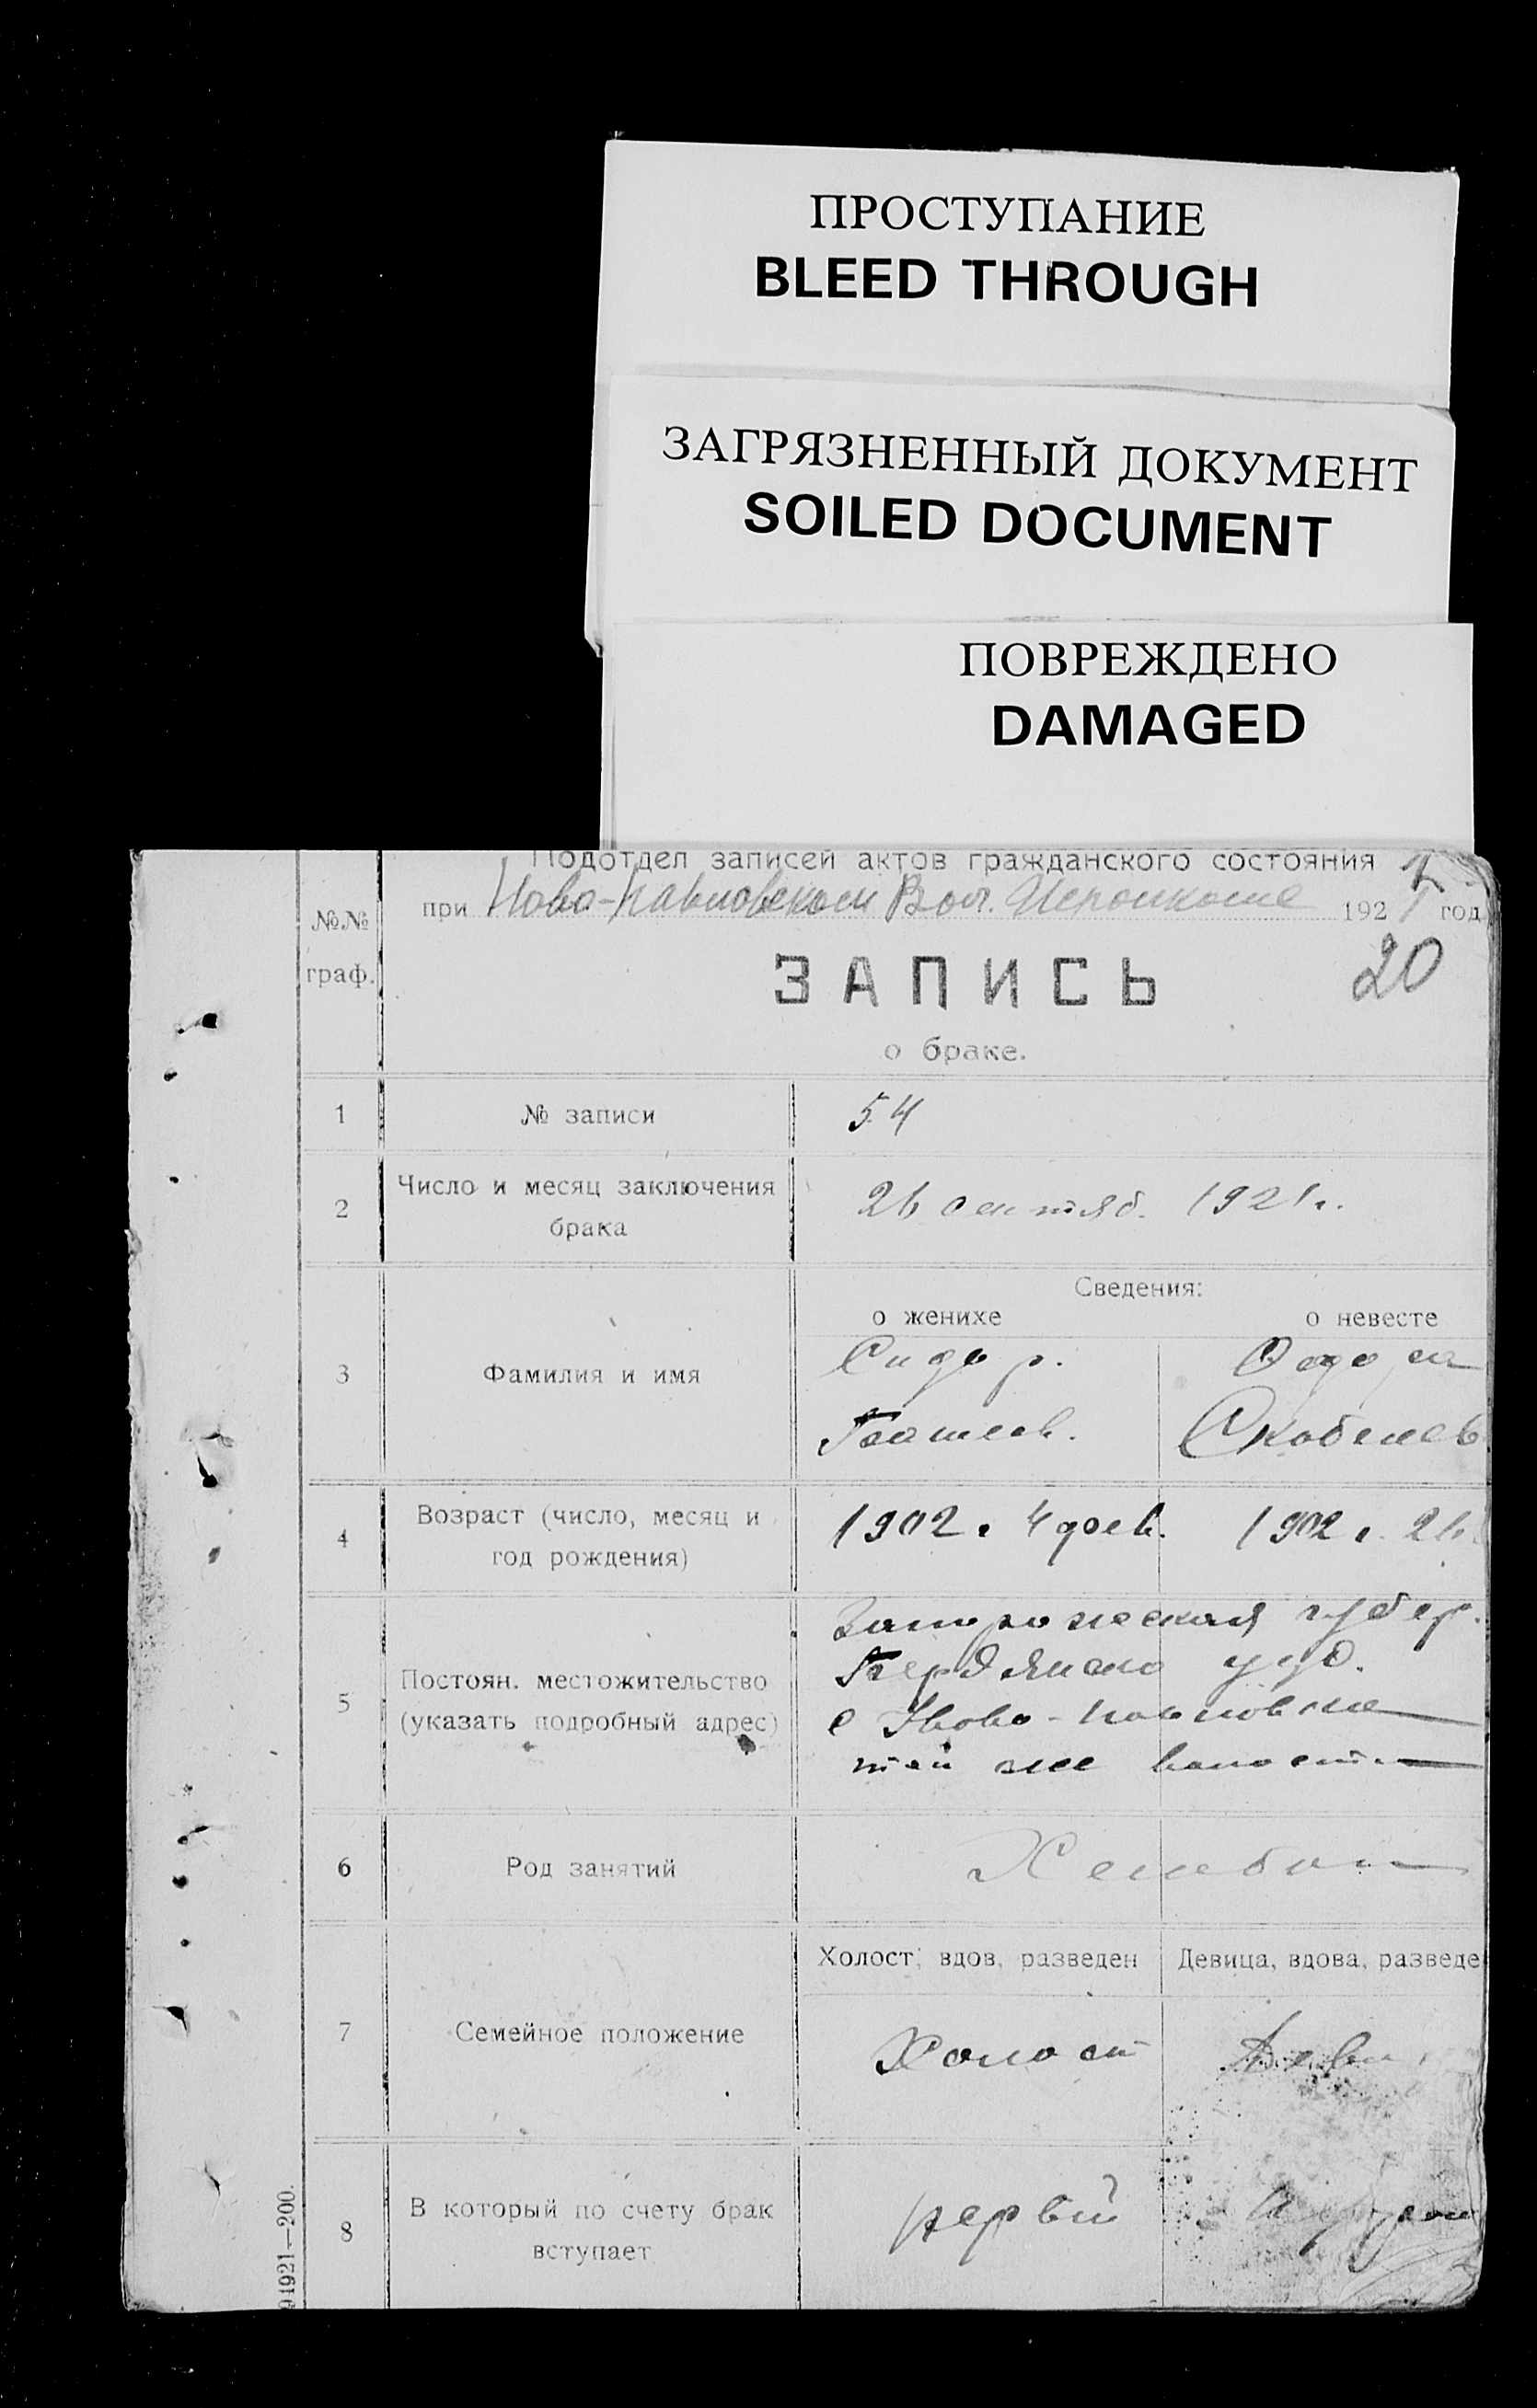 ПРОСТУПАНИЕ
BLEED THROUGH
ЗАГРЯЗНЕННЫЙ ДОКУМЕНТ
SOILED DOCUMENT
ПОВРЕЖДЕНО
DAMAGED
Подотдел записей актов гражданского состояния
при Ново-Павловском Вол. Исполкоме 1921 год
20
№№
граф.
ЗАПИСЬ
о браке.
1 № записи 54
2 Число и месяц заключения
брака
26 сентяб. 1921 г.
Сведения:
о женихе о невесте
3 Фамилия и имя
Сидор.
Скобелев
4 Возраст (число, месяц и
год рождения)
1902 г. 4 фев. 1902 г. 26
5 Постоян. местожительство
(указать подробный адрес)
Запорожская губер.
Бердянско уезд.
с Ново-Павловка
той же волости
6 Род занятий
Хлебоп
Холост, вдов, разведен Девица, вдова, разведе
7 Семейное положение
Холост Деви
8 В который по счету брак
вступает
первый
1921—200.